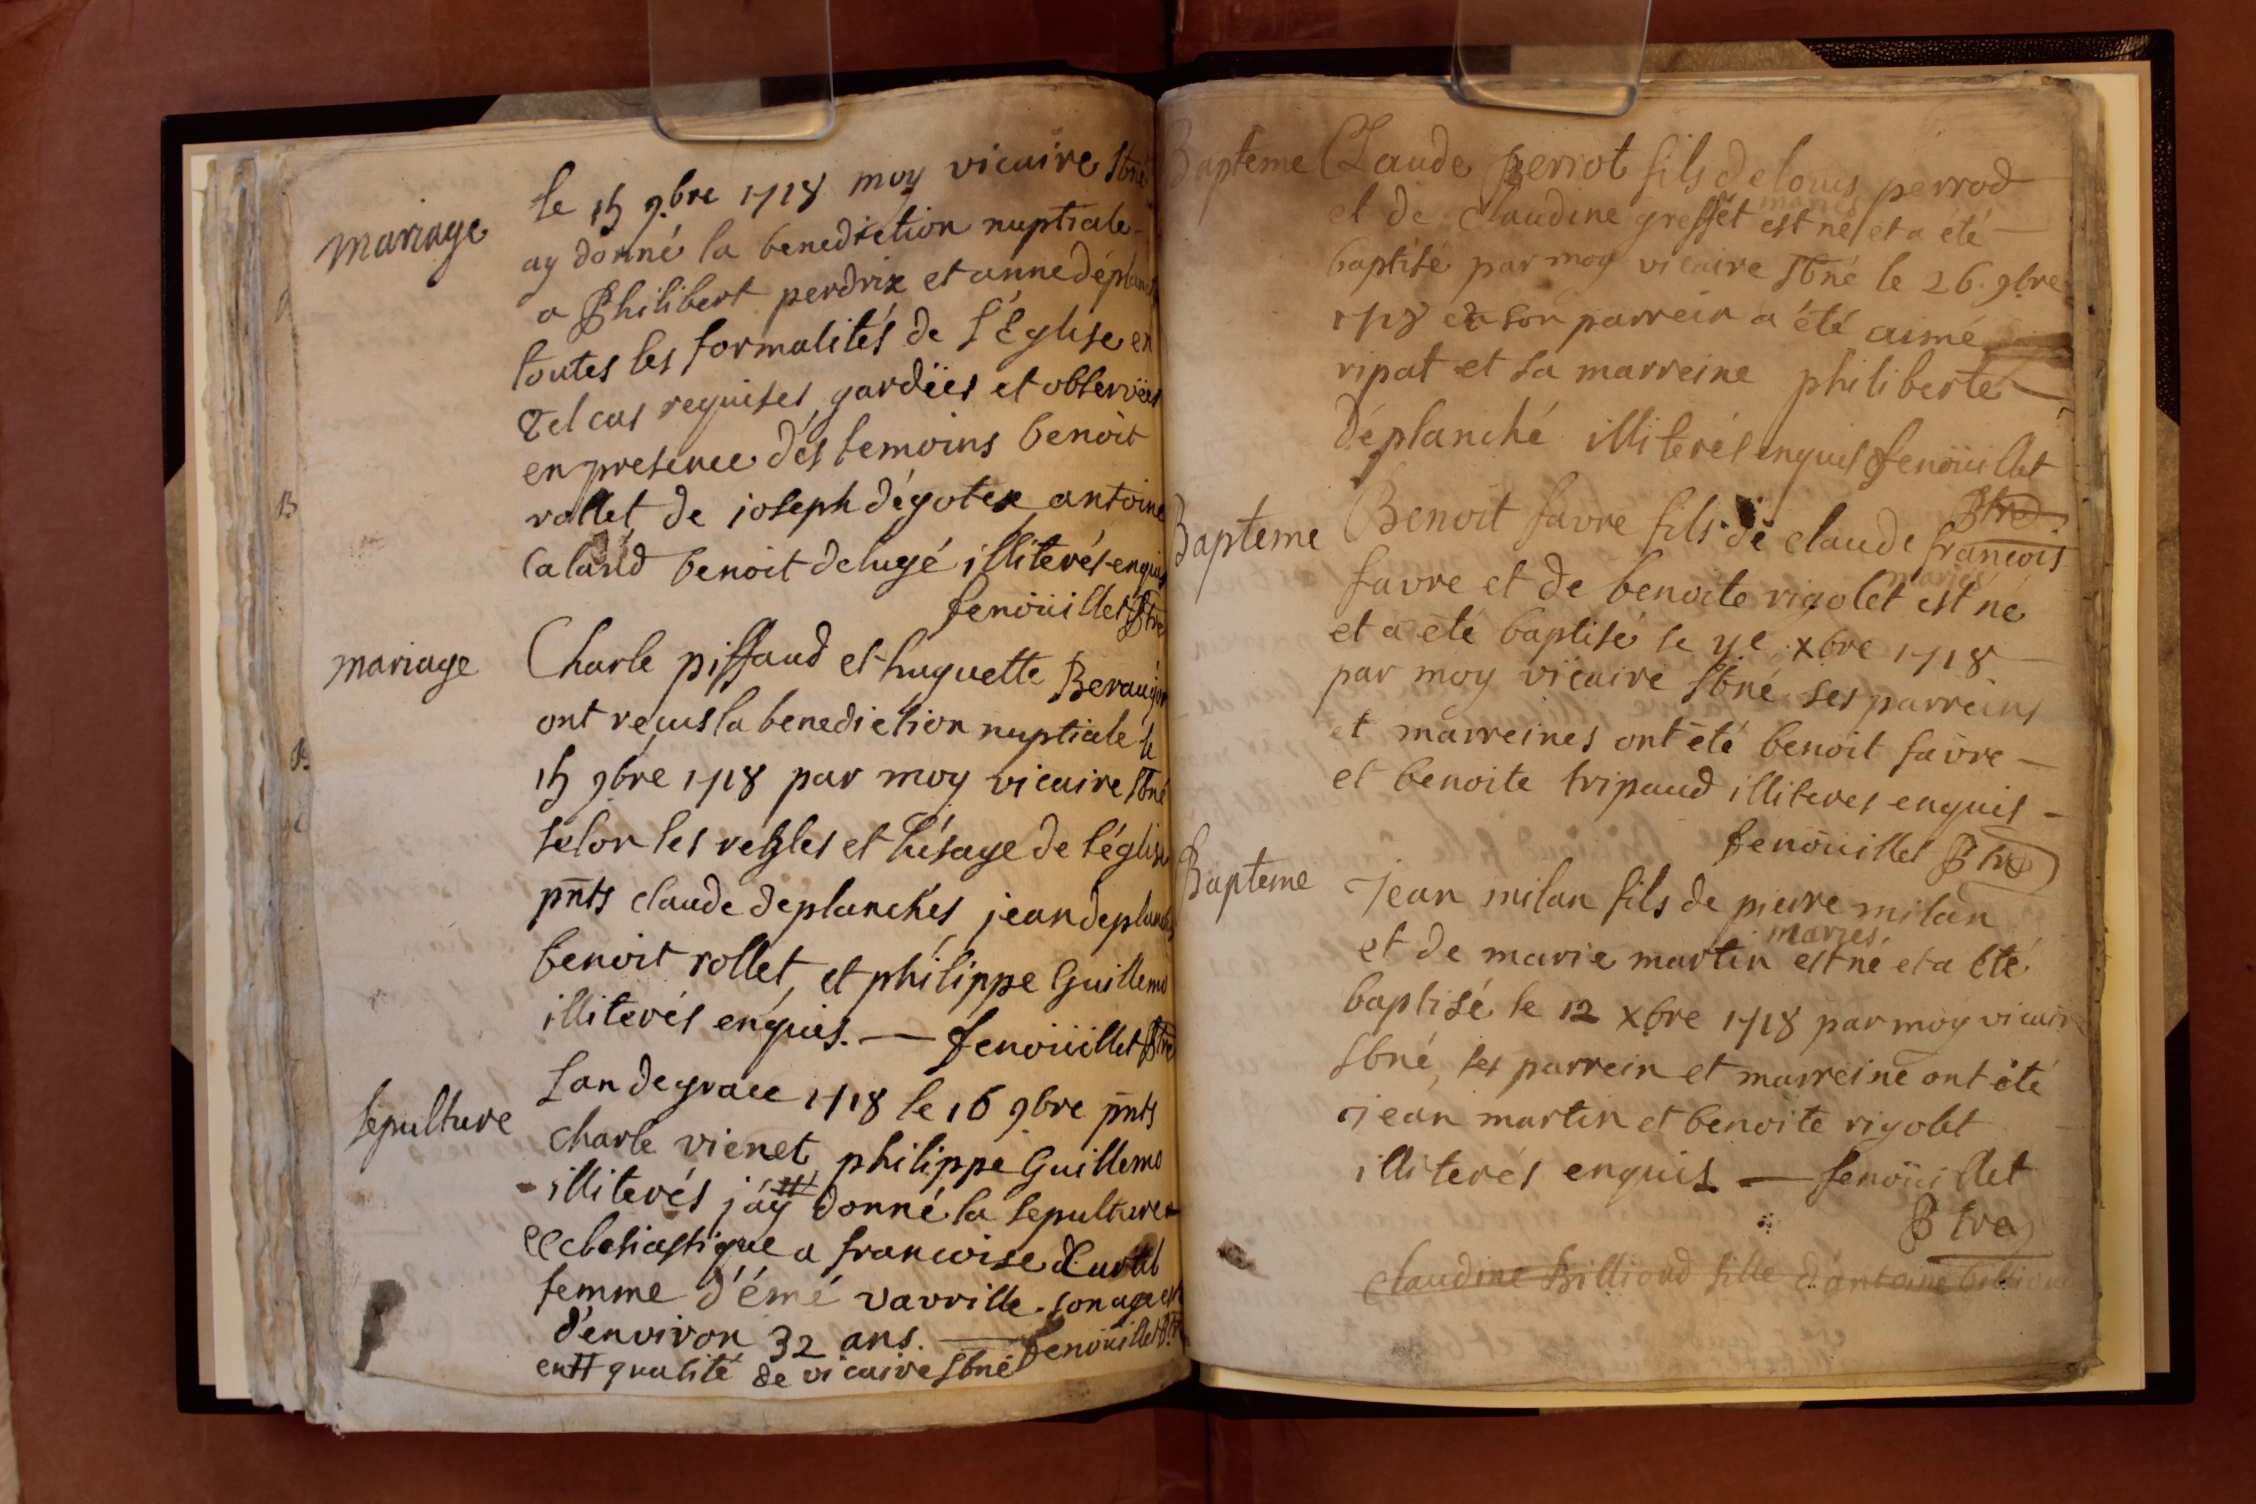 mariage
le 15 9bre 1718 moy vicaire sbné
ay donné la benediction nuptiale
a Philibert perdrix et anne déplanch
toutes les formalités de l'Eglise en
tel cas requises, gardëes et observëes
en presence dés temoins benoit
rollet de joseph dégotex antoine
caland benoit delugé illiterés enquis
fenoüillet Ptre
mariage
Charle piffaud et huguette Beraujon
ont reçus la benediction nuptiale le
15 9bre 1718 par moy vicaire sbné
selon les regles et l'úsage de l'église
pnts claude deplanchés, jean deplanchés
benoit rollet, et philippe Guillemo
illiterés enquis. — fenoüillet Ptre
sepulture
L'an de grace 1718 le 16 9bre pnts
charle vienet, philippe Guillemo
illiterés j'ay # donné la sepulture
ecclesiastique a francoise
femme d'émé vavrille. son age est
d'environ 32 ans. — fenoüillet Ptre
en # qualité de vicaire sbné
Bapteme
Claude perrot fils de louis perrod
mariés
et de claudine greffet est né et a été —
baptisé par moy vicaire sbné le 26. 9bre
1718 son parrein a été aimé
ripat et sa marreine philiberte —
déplanché illiterés enquis fenoüillet
Ptre
Bapteme
Benoit favre fils de claude francois
mariés
favre et de benoite rigolet est né
et a eté baptisé le xbre 1718 —
par moy vicaire sbné ses parreins
et marreines ont été benoit favre —
et benoite tripaud illiteres enquis —
fenoüillet Ptre
Bapteme
jean milan fils de pierre milan
mariés
et de marie martin est né et a été
baptisé le 12 xbre 1718 par moy vicair
sbné, ses parrein et marreine ont été
jean martin et benoite rigolet
illiterés enquis — fenoüillet
Ptre
claudine billioud fille d'antoine billioud